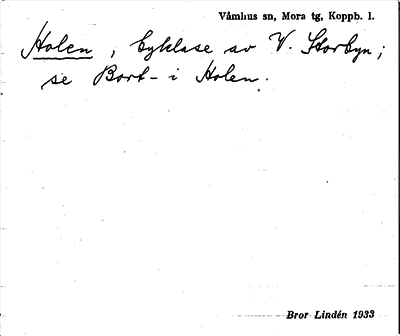 Våmhus sn, Mora tg, Koppb. l.
Holen, byklase av V. Storbyn;
se Bort- i Holen.
Bror Lindén 1933